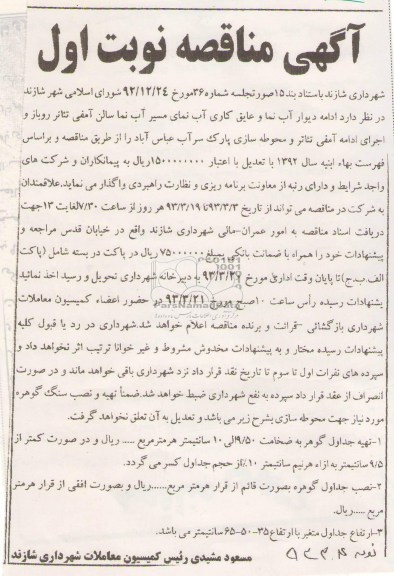 آگهی مناقصه نوبت اول
شهرداری شازند باستناد بند ۱۵صورتجلسه شماره ۳۶مورخ ۹۲/۱۲/۲۴ شورای اسلامی شهر شازند
در نظر دارد ادامه دیوار آب نما و عایق کاری آب نمای مسیر آب نما سالن آمفی تئاتر روباز و
اجرای ادامه آمفی تئاتر و محوطه سازی پارک سرآب عباس آباد را از طریق مناقصه و براساس
فهرست بهاء ابنیه سال ۱۳۹۲ با تعدیل با اعتبار ۱۵۰۰۰۰۰۰۰۰ریال به پیمانکاران و شرکت های
واجد شرایط و دارای رتبه از معاونت برنامه ریزی و نظارت راهبردی واگذار می نماید.علاقمندان
به شرکت در مناقصه می تواند از تاریخ ۹۳/۳/۳تا ۹۳/۳/۱۹ هر روز از ساعت ۷/۳۰لغایت ۱۳جهت
دریافت اسناد مناقصه به امور عمران-مالی شهرداری شازند واقع در خیابان قدس مراجعه و
پیشنهادات خود را همراه با ضمانت بانکی بمبلغ ۷۵۰۰۰۰۰۰ ریال در پاکت در بسته شامل (پاکت
الف.ب.ج)تا پایان وقت اداری مورخ ۹۳/۳/۲۰ به دبیرخانه شهرداری تحویل و رسید اخذ نمائید
پشنهادات رسیده رأس ساعت ۱۰صبح مورخ ۹۳/۳/۲۱ در حضور اعضاء کمیسیون معاملات
شهرداری بازگشائی -قرائت و برنده مناقصه اعلام خواهد شد.شهرداری در رد یا قبول کلیه
پیشنهادات رسیده مختار و به پیشنهادات مخدوش مشروط و غیر خوانا ترتیب اثر نخواهد داد و
سپرده های نفرات اول تا سوم تا تاریخ عقد قرار داد نزد شهرداری باقی خواهد ماند و در صورت
انصراف از عقد قرار داد سپرده به نفع شهرداری ضبط خواهد شد.ضمناً تهیه و نصب سنگ گوهره
مورد نیاز جهت محوطه سازی بشرح زیر می باشد و تعدیل به آن تعلق نخواهد گرفت.
۱-تهیه جداول گوهر به ضخامت ۹/۵۰الی ۱۰ سانتیمتر هرمترمربع ..... ریال و در صورت کمتر از
۹/۵ سانتیمتر به ازاء هرنیم سانتیمتر ۱۰٪از حجم جداول کسر می گردد.
۲-نصب جداول گوهره بصورت قائم از قرار هرمتر مربع......ریال و بصورت افقی از قرار هرمتر
مربع .....ریال.
۳-ارتفاع جداول متغیر با ارتفاع ۳۵-۵۰-۶۵ سانتیمتر می باشد.
مسعود مشیدی رئیس کمیسیون معاملات شهرداری شازند